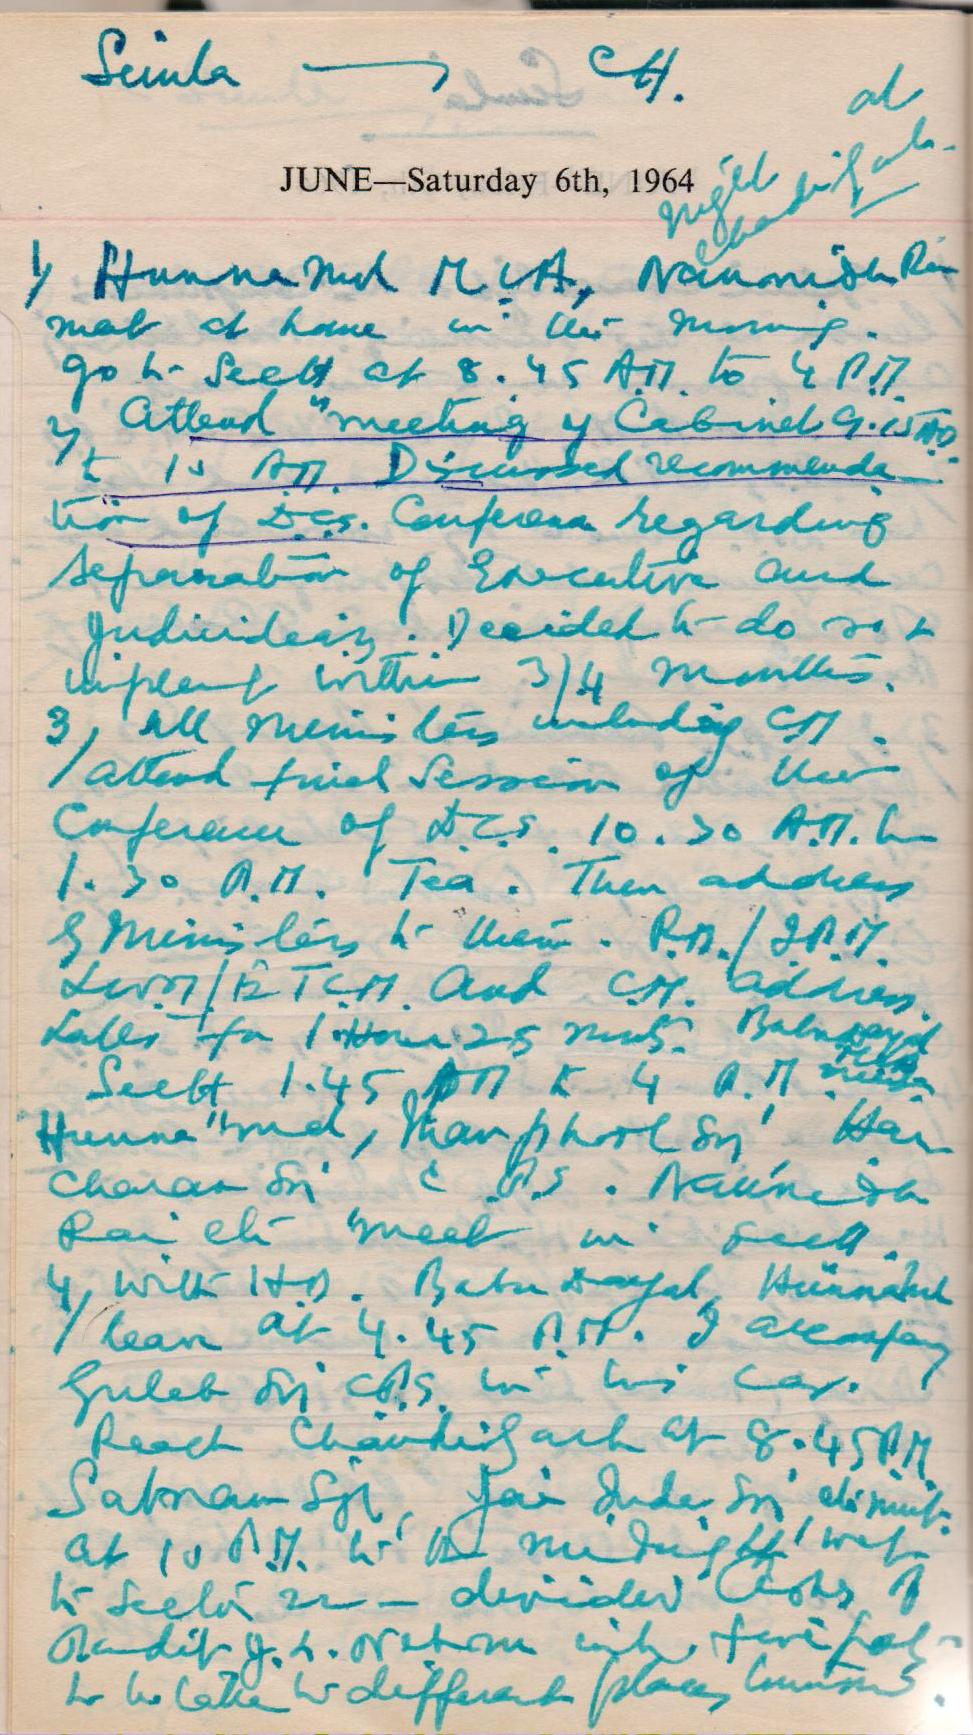 Simla → CH.
Night at Chandigarh.
JUNE—Saturday 6th, 1964
1) Hunna Mal M.L.A., Naunidh Rai
meet at home in the morning.
go to Sectt at 8.45 A.M. to 4 P.M.
2) Attend meeting of Cabinet 9.15 A.M.
to 10 A.M. Discussed recommenda-
tion of D.Cs. Conference regarding
Separation of Executive and
Judiciary. Decided to do so &
implement within 3/4 months.
3) All Ministers including CM.
attend final Session of the
Conference of D.Cs. 10.30 A.M. to
1.30 P.M. Tea. Then address
by Ministers to them. P.M./
and C.M. address.
Latter for 1 Hour 25 mts. Babu Dayal
Sectt 1.45 PM to 4 P.M.
Hunna Mal, Phool Sgh Har
Charan Sgh C.P.S. Naunidh
Rai etc meet in Sectt.
4) With Babu Dayal, Hunna Mal
leave at 4.45 P.M. I accompany
Gulab Sgh C.P.S. in his car.
Reach Chandigarh at 8.45 P.M.
Satnam Sgh, Jai Inder Sgh etc meet.
at 10 P.M. to midnight went
to Sector 22 — divided Ashes of
Pandit J.L. Nehru into
to be taken to different places